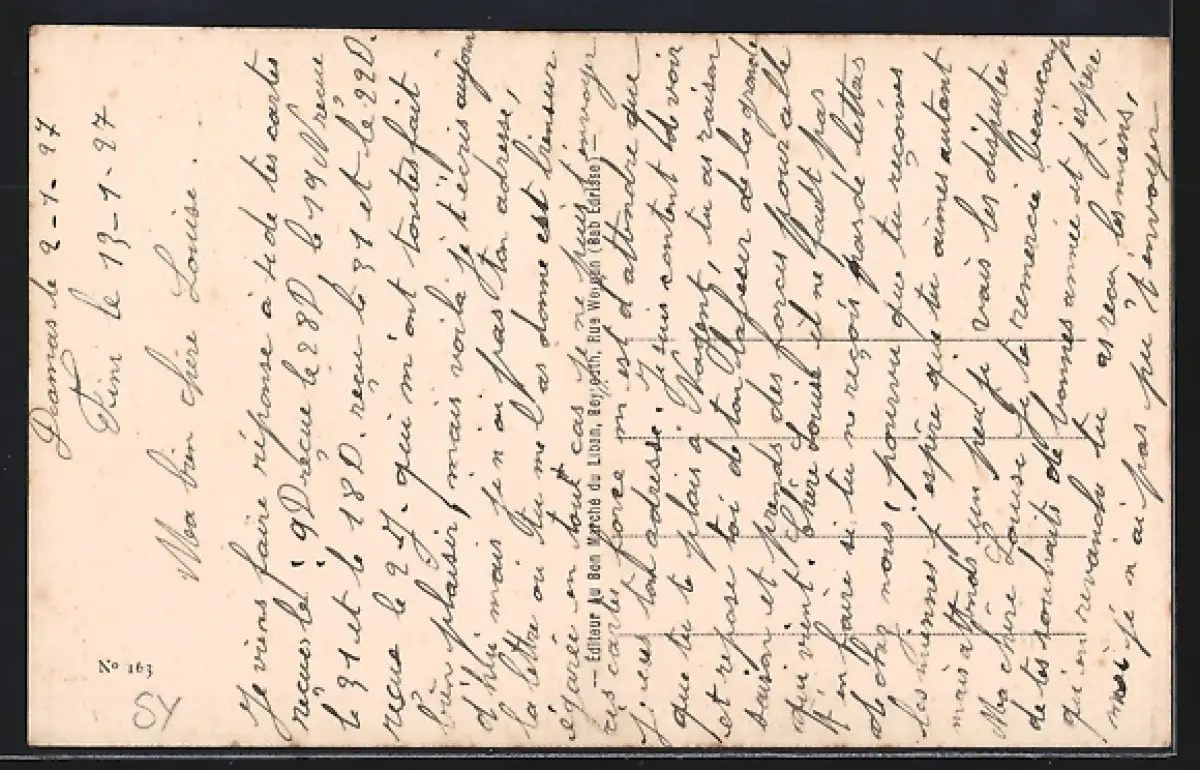 Damas le 2-1-27
Fini le 13-1-27
Ma bien chère Louise.
Je viens faire réponse à 4 de tes cartes
recues le 9 D recue le 28 D le 19 N recue
le 31 et le 18 D. recu le 31 et le 22 D.
recue le 2-J. qui m'ont toutes fait
bien plaisir, mais voilà je t'écris aujour
d'hui mais je n'ai pas ton adresse,
la lettre ou tu me l'as donne est bien sur
égarée en tout cas je ne puis envoyer
ces cartes force m'est d'attendre que
j'eus ton adresse. Je suis content de voir
que tu te plais a Nogent, tu as raison
et repose toi de ton plaisir de la grande
saison et prends des forces pour celle
qui vient. Chère Louise il ne fault pas
t'en faire si tu ne reçois pas de lettres
de chez nous, pourvu que tu recoives
les miennes j'espère que tu aimes autant
mais attends un peu je vais les disputer
Ma chère Louise je te remercie beaucoup
de tes souhaits de bonnes année et j'espère
qu'en revanche tu as recu les miens,
moi je n'ai pas pu t'envoyer
-- Editeur Au Bon Marché du Liban, Beyrouth, Rue Weygan (Bab Edrisse) --
No 163
SY